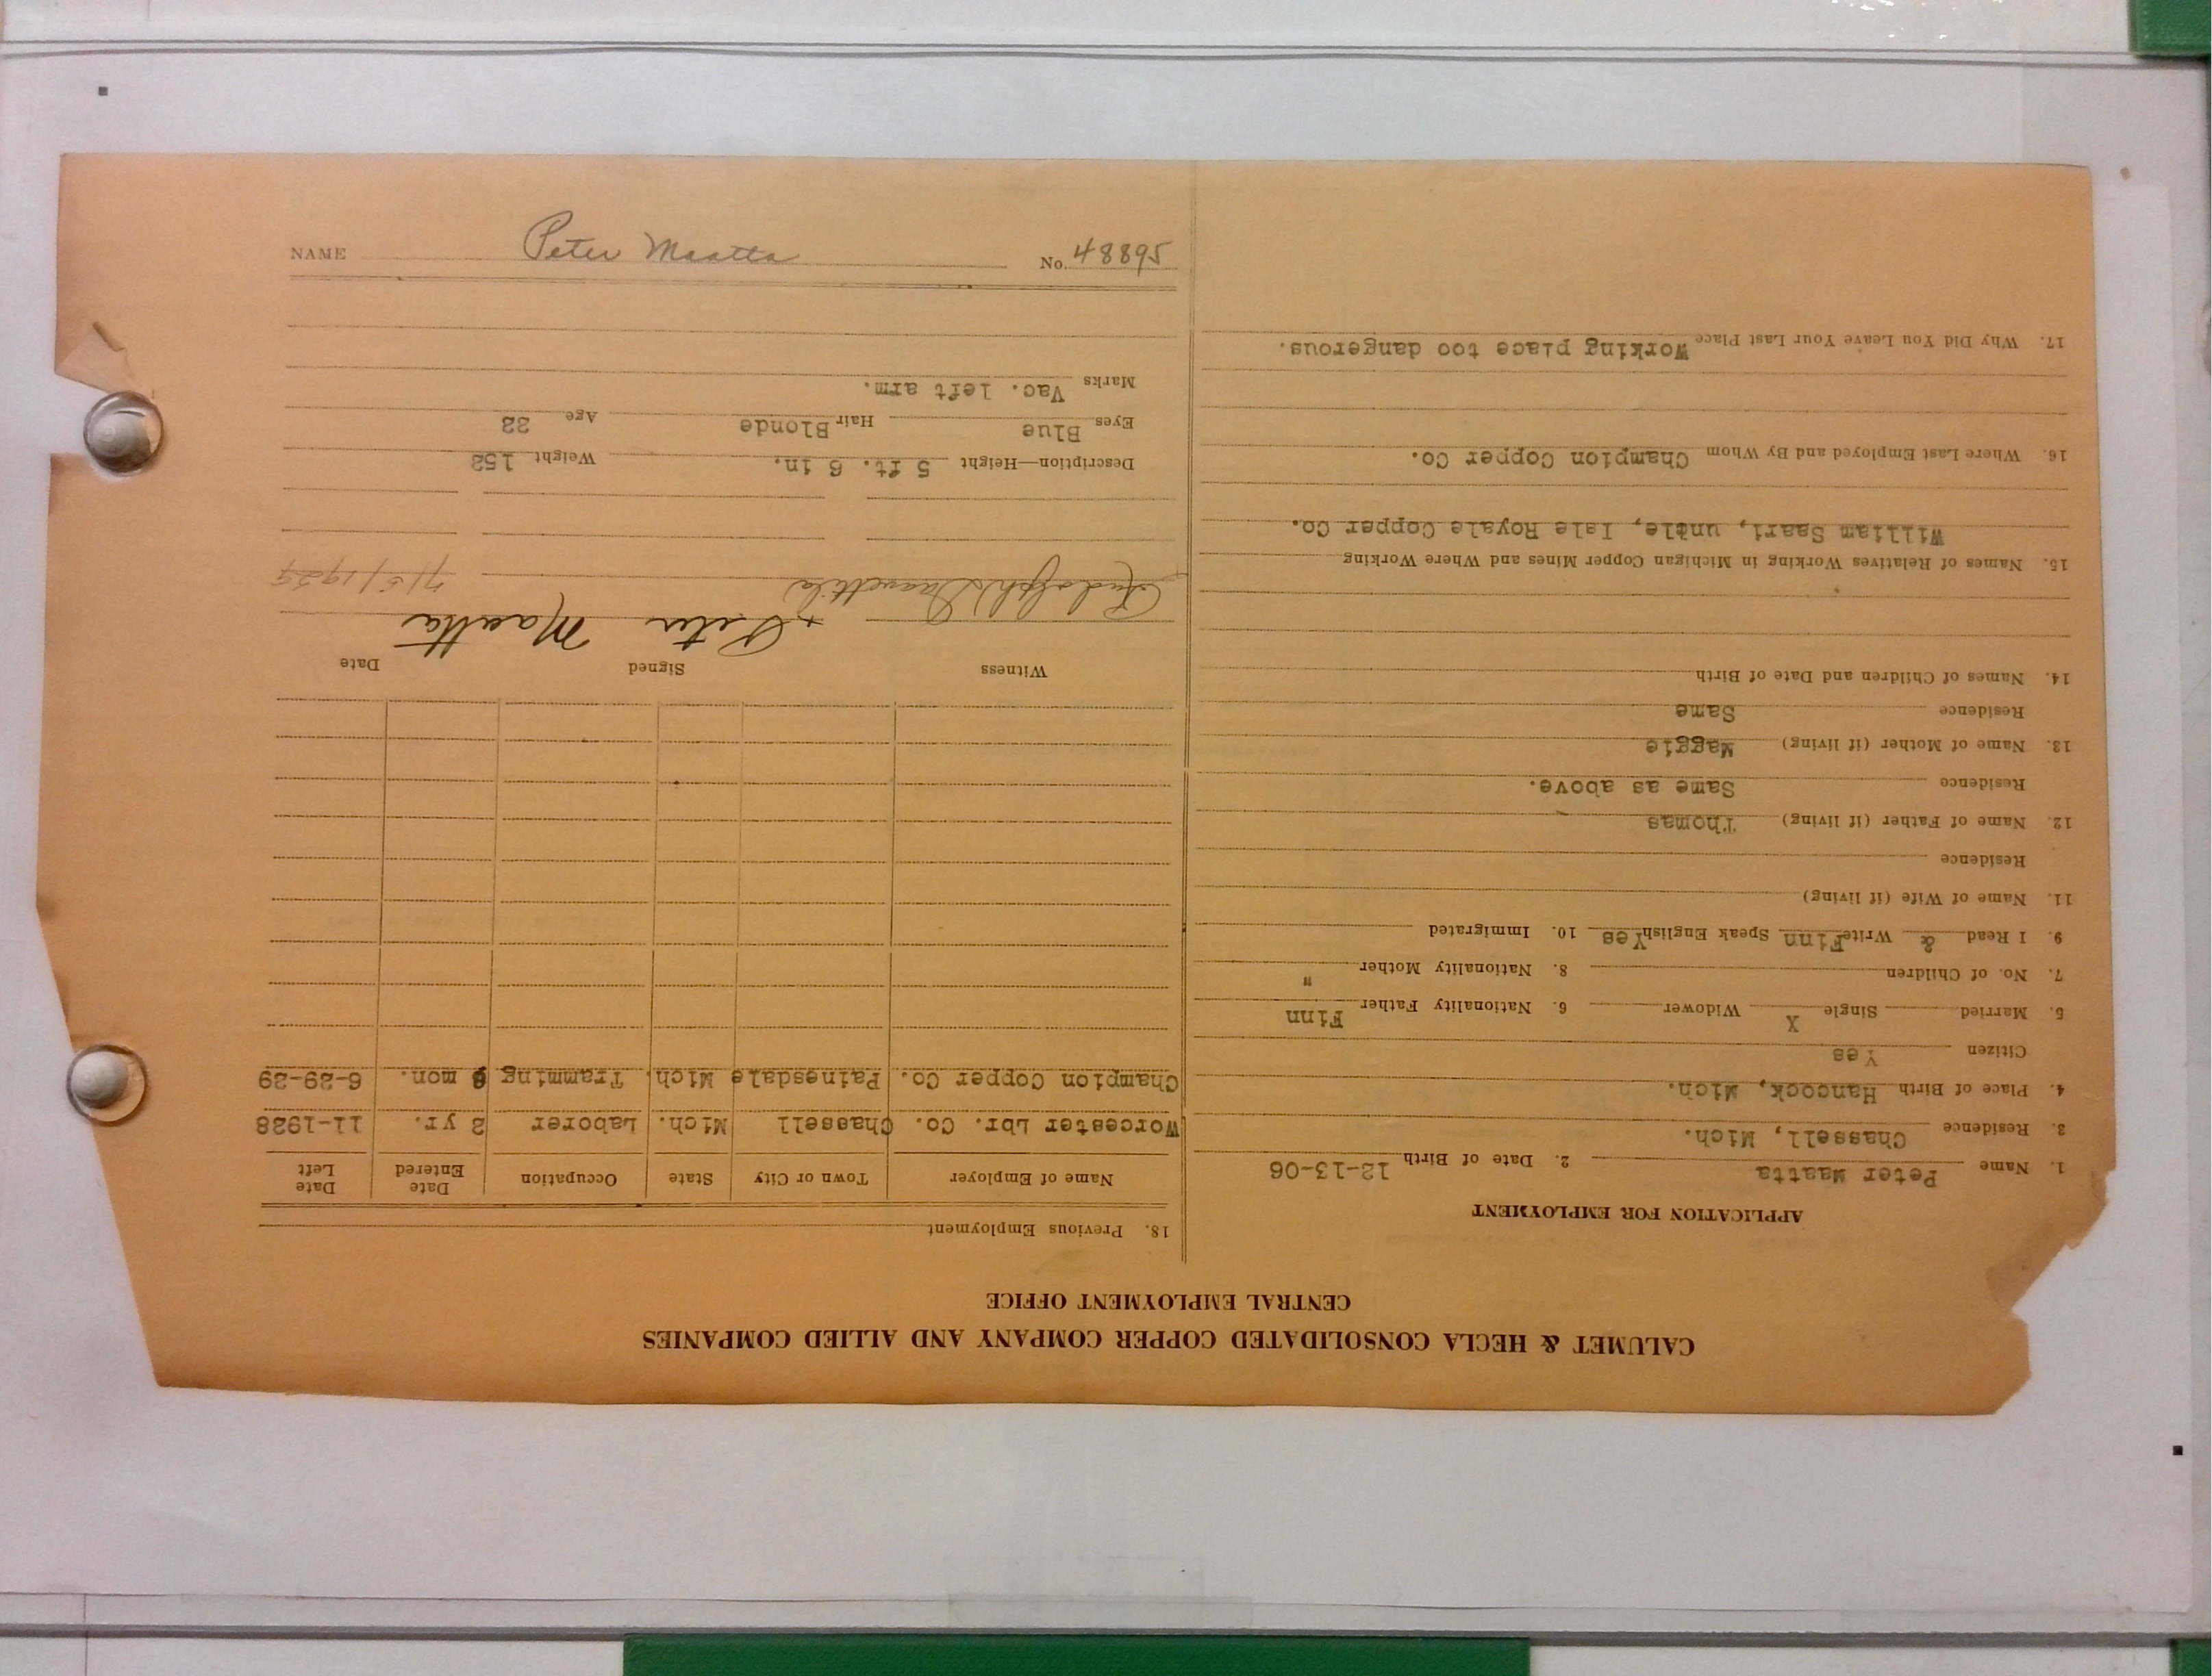 CALUMET & HECLA CONSOLIDATED COPPER COMPANY AND ALLIED COMPANIES
CENTRAL EMPLOYMENT OFFICE
APPLICATION FOR EMPLOYMENT
1. Name Peter Maatta 2. Date of Birth 12-13-06
3. Residence Chassell, Mich.
4. Place of Birth Hancock, Mich.
Citizen Yes
5. Married Single X Widower 6. Nationality Father Finn
7. No. of Children 8. Nationality Mother "
9. I Read & Write Finn Speak English Yes 10. Immigrated
11. Name of Wife (if living)
Residence
12. Name of Father (if living) Thomas
Residence Same as above.
13. Name of Mother (if living) Maggie
Residence Same
14. Names of Children and Date of Birth
15. Names of Relatives Working in Michigan Copper Mines and Where Working
William Saari, uncle, Isle Royale Copper Co.
16. Where Last Employed and By Whom Champion Copper Co.
17. Why Did You Leave Your Last Place Working place too dangerous.
18. Previous Employment
Name of Employer Town or City State Occupation Date Entered Date Left
Worcester Lbr. Co. Chassell Mich. Laborer 2 yr. 11-1928
Champion Copper Co. Painesdale Mich. Tramming mon. 6-29-29
Witness Signed Date
x Peter Maatta
Rudolph 7/5/1929
Description—Height 5 ft. 6 in. Weight 152
Eyes Blue Hair Blonde Age 22
Marks Vac. left arm.
NAME Peter Maatta No. 48895